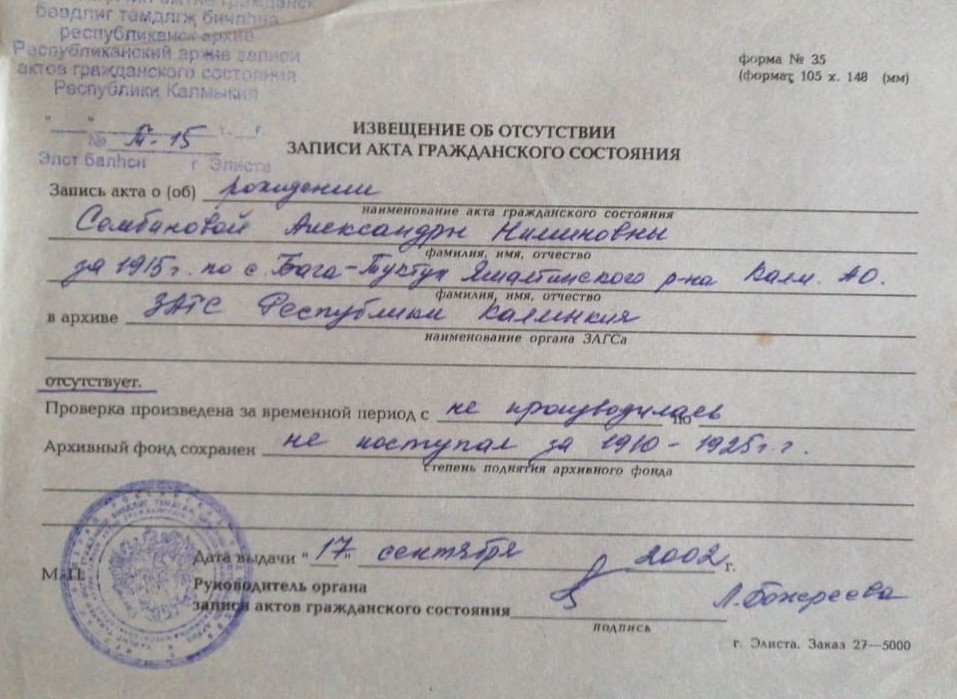 бичлһнә
республиканск архив
Республиканский архив записи
актов гражданского состояния
Республики Калмыкия
"   "   г.
№ Т-15
Элст балһсн г Элиста
форма № 35
(формат 105 х. 148 (мм)
ИЗВЕЩЕНИЕ ОБ ОТСУТСТВИИ
ЗАПИСИ АКТА ГРАЖДАНСКОГО СОСТОЯНИЯ
Запись акта о (об) рождении
наименование акта гражданского состояния
Сембиновой Александры Нимяновны
фамилия, имя, отчество
за 1915г. по с. Бага-Туктун Яшалтинского р-на Калм. АО.
фамилия, имя, отчество
в архиве ЗАГС Республики Калмыкия
наименование органа ЗАГСа
отсутствует.
Проверка произведена за временной период с не производилась по
Архивный фонд сохранен не поступал за 1910-1925г.г.
степень поднятия архивного фонда
Дата выдачи "17" сентября 2002 г.
М.П.
Руководитель органа
записи актов гражданского состояния
подпись
г. Элиста. Заказ 27—5000